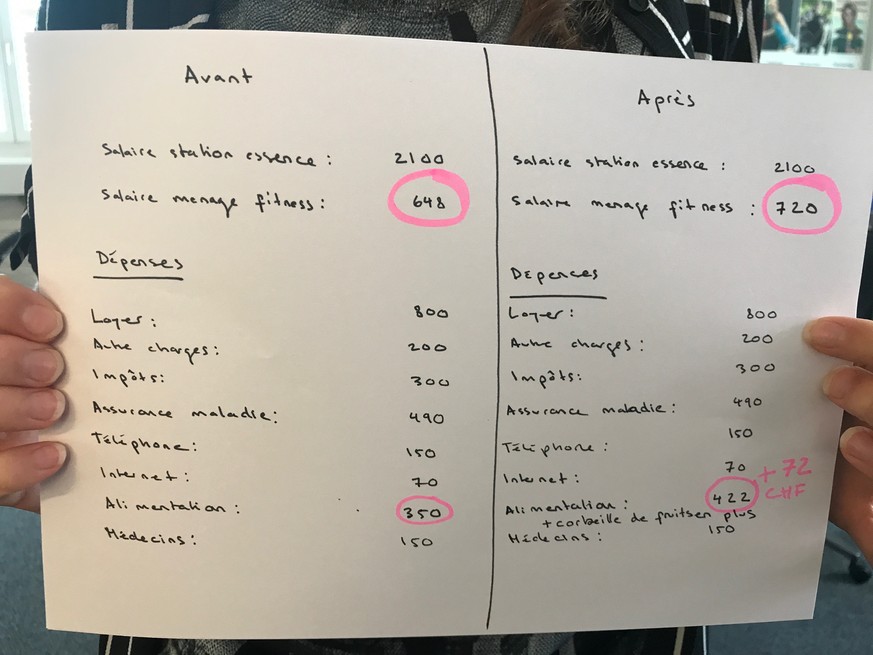 Avant
Salaire station essence : 2100
Salaire menage fitness : 648
Dépenses
Loyer : 800
Autre charges : 200
Impôts : 300
Assurance maladie : 490
Téléphone : 150
Internet : 70
Alimentation : 350
Médecins : 150
Après
Salaire station essence : 2100
Salaire menage fitness : 720
Dépences
Loyer : 800
Autre charges : 200
Impôts : 300
Assurance maladie : 490
Téléphone : 150
Internet : 70
+ 72
CHF
Alimentation : 422
+ corbeille de fruits en plus
Médecins : 150